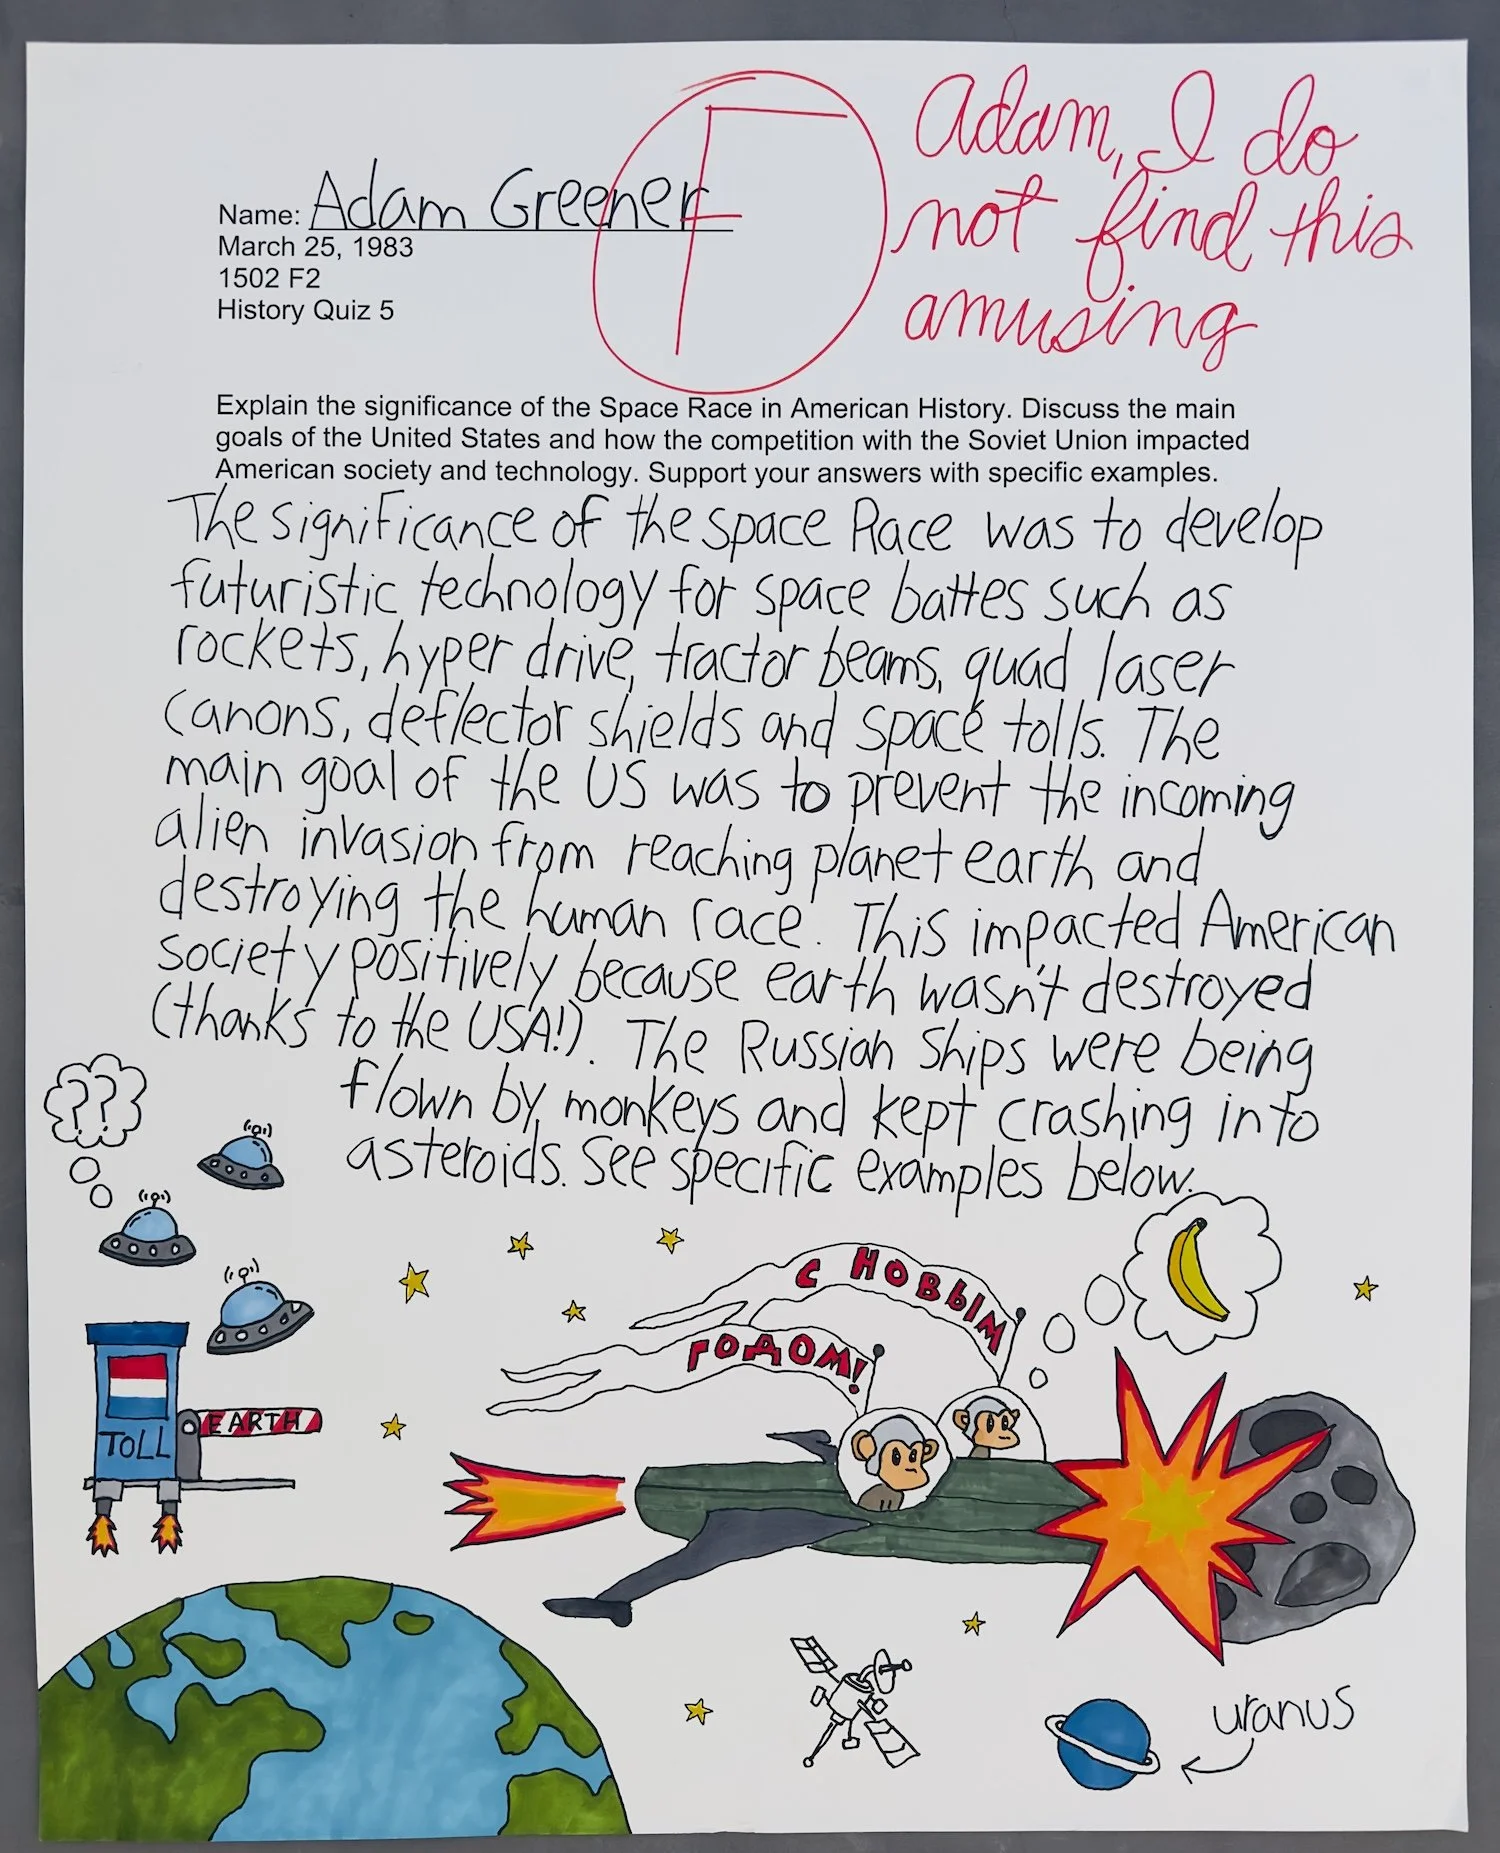 F
Adam, I do
not find this
amusing
Name: Adam Greener
March 25, 1983
1502 F2
History Quiz 5
Explain the significance of the Space Race in American History. Discuss the main
goals of the United States and how the competition with the Soviet Union impacted
American society and technology. Support your answers with specific examples.
The significance of the space Race was to develop
futuristic technology for space battes such as
rockets, hyper drive, tractor beams, quad laser
canons, deflector shields and space tolls. The
main goal of the US was to prevent the incoming
alien invasion from reaching planet earth and
destroying the human race. This impacted American
society positively because earth wasn't destroyed
(thanks to the USA!). The Russian ships were being
flown by monkeys and kept crashing into
asteroids. See specific examples below.
???
С НОВЫМ
ГОДОМ!
EARTH
TOLL
uranus